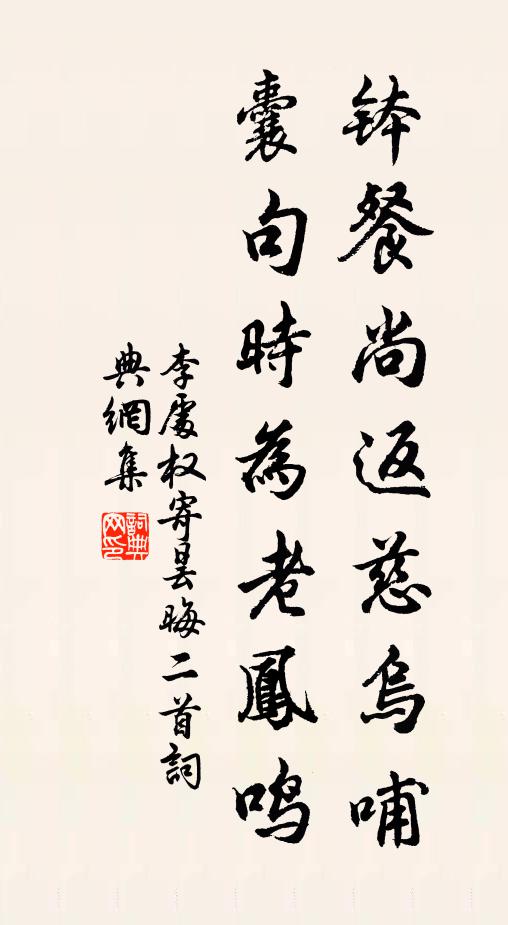 钵餐尚返慈烏哺
囊句時為老鳳鳴
李處权寄昙晦二首詞
典網集
詞典網印